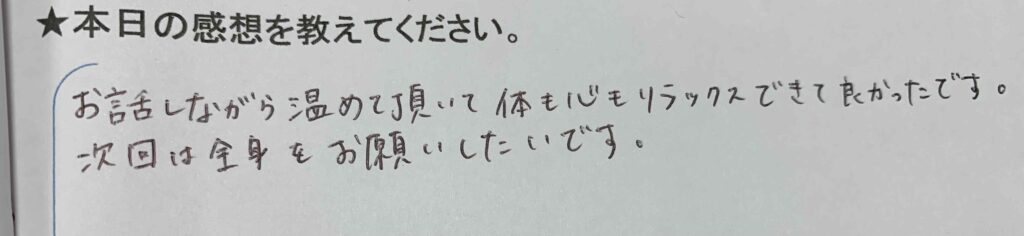 ★本日の感想を教えてください。
お話しながら温めて頂いて体も心もリラックスできて良かったです。
次回は全身をお願いしたいです。